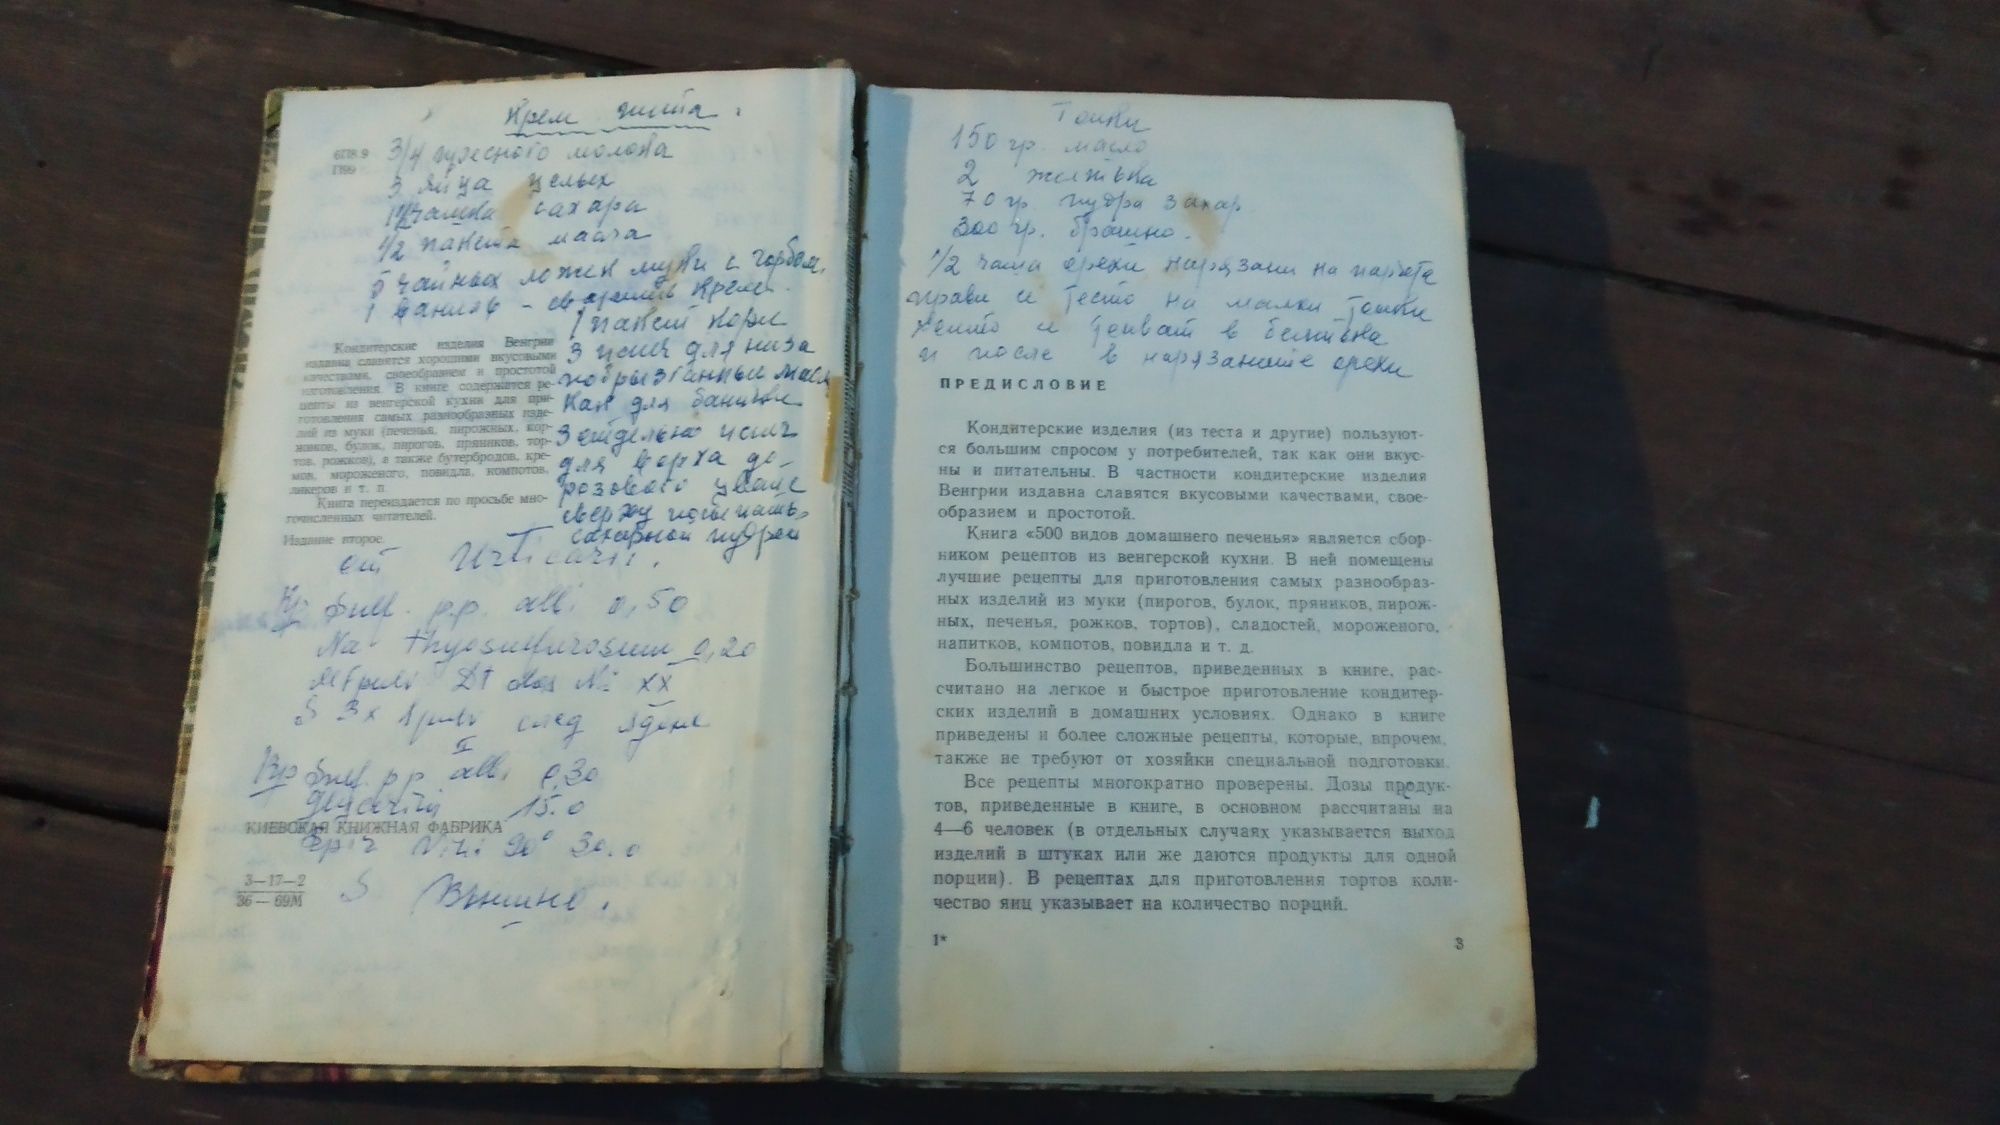 Крем пита.
6П8.9
П99
3/4 пресного молока
3 яйца целых
1 1/2 чашка сахара
1/2 пакета масла
5 чайных ложек муки с горбом,
1 ваниль - сварить крем.
1 пакет кори
3 исич для низа
побрызганные масл
как для баницы
3 отдельно испич
для верха до
розового цвета
сверху посыпать
сахарной пудрой
Кондитерские изделия Венгрии
издавна славятся хорошими вкусовыми
качествами, своеобразием и простотой
изготовления. В книге содержатся ре-
цепты из венгерской кухни для при-
готовления самых разнообразных изде-
лий из муки (печенья, пирожных, кор-
жиков, булок, пирогов, пряников, тор-
тов, рожков), а также бутербродов, кре-
мов, мороженого, повидла, компотов,
ликеров и т. п.
Книга переиздается по просьбе мно-
гочисленных читателей.
Издание второе.
от Urticarii.
Rp Sulf. p.p. alli 0,50
Na thyosulfurosum 0,20
Dt dos № XX
S 3x1 след ядене
II
Rp Sulf. p.p. alli 0,30
Glycerini 15.0
Spir Vini 90° 30.0
КИЕВСКАЯ КНИЖНАЯ ФАБРИКА
S Външно.
3—17—2
36 — 69М
Топки
150 гр. масло
2 жълтъка
70 гр. пудра захар.
300 гр. брашно.
1/2 чаша орехи нарязани на парчета
прави се тесто на малки топки
които се топват в белтъка
и после в нарязаните орехи
ПРЕДИСЛОВИЕ
Кондитерские изделия (из теста и другие) пользуют-
ся большим спросом у потребителей, так как они вкус-
ны и питательны. В частности кондитерские изделия
Венгрии издавна славятся вкусовыми качествами, свое-
образием и простотой.
Книга «500 видов домашнего печенья» является сбор-
ником рецептов из венгерской кухни. В ней помещены
лучшие рецепты для приготовления самых разнообраз-
ных изделий из муки (пирогов, булок, пряников, пирож-
ных, печенья, рожков, тортов), сладостей, мороженого,
напитков, компотов, повидла и т. д.
Большинство рецептов, приведенных в книге, рас-
считано на легкое и быстрое приготовление кондитер-
ских изделий в домашних условиях. Однако в книге
приведены и более сложные рецепты, которые, впрочем,
также не требуют от хозяйки специальной подготовки.
Все рецепты многократно проверены. Дозы продук-
тов, приведенные в книге, в основном рассчитаны на
4—6 человек (в отдельных случаях указывается выход
изделий в штуках или же даются продукты для одной
порции). В рецептах для приготовления тортов коли-
чество яиц указывает на количество порций.
1*
3